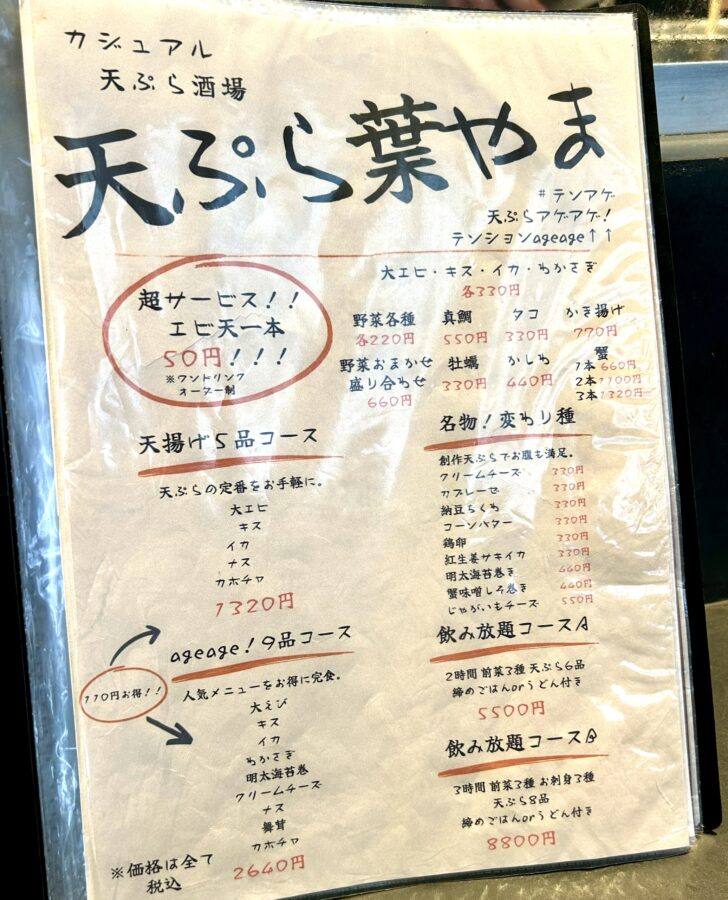 カジュアル
天ぷら酒場
天ぷら葉やま
#テンアゲ
天ぷらアゲアゲ!
テンションageage↑↑
超サービス!!
エビ天一本
50円!!!
※ワンドリンク
オーダー制
大エビ・キス・イカ・わかさぎ
各330円
野菜各種 真鯛 タコ かき揚げ
各220円 550円 330円 770円
野菜おまかせ 牡蠣 かしわ 蟹
盛り合わせ 330円 440円 1本660円
660円 2本1100円
3本1320円
天揚げ5品コース
天ぷらの定番をお手軽に。
大エビ
キス
イカ
ナス
カボチャ
1320円
ageage!9品コース
110円お得!!
人気メニューをお得に完食。
大えび
キス
イカ
わかさぎ
明太海苔巻
クリームチーズ
ナス
舞茸
カボチャ
2640円
※価格は全て
税込
名物!変わり種
創作天ぷらでお腹も満足。
クリームチーズ 330円
カプレーゼ 330円
納豆ちくわ 330円
コーンバター 330円
鶏卵 330円
紅生姜サキイカ 330円
明太海苔巻き 440円
蟹味噌しそ巻き 440円
じゃがいもチーズ 550円
飲み放題コースA
2時間 前菜3種 天ぷら6品
締めごはんorうどん付き
5500円
飲み放題コースB
3時間 前菜3種 お刺身3種
天ぷら8品
締めごはんorうどん付き
8800円